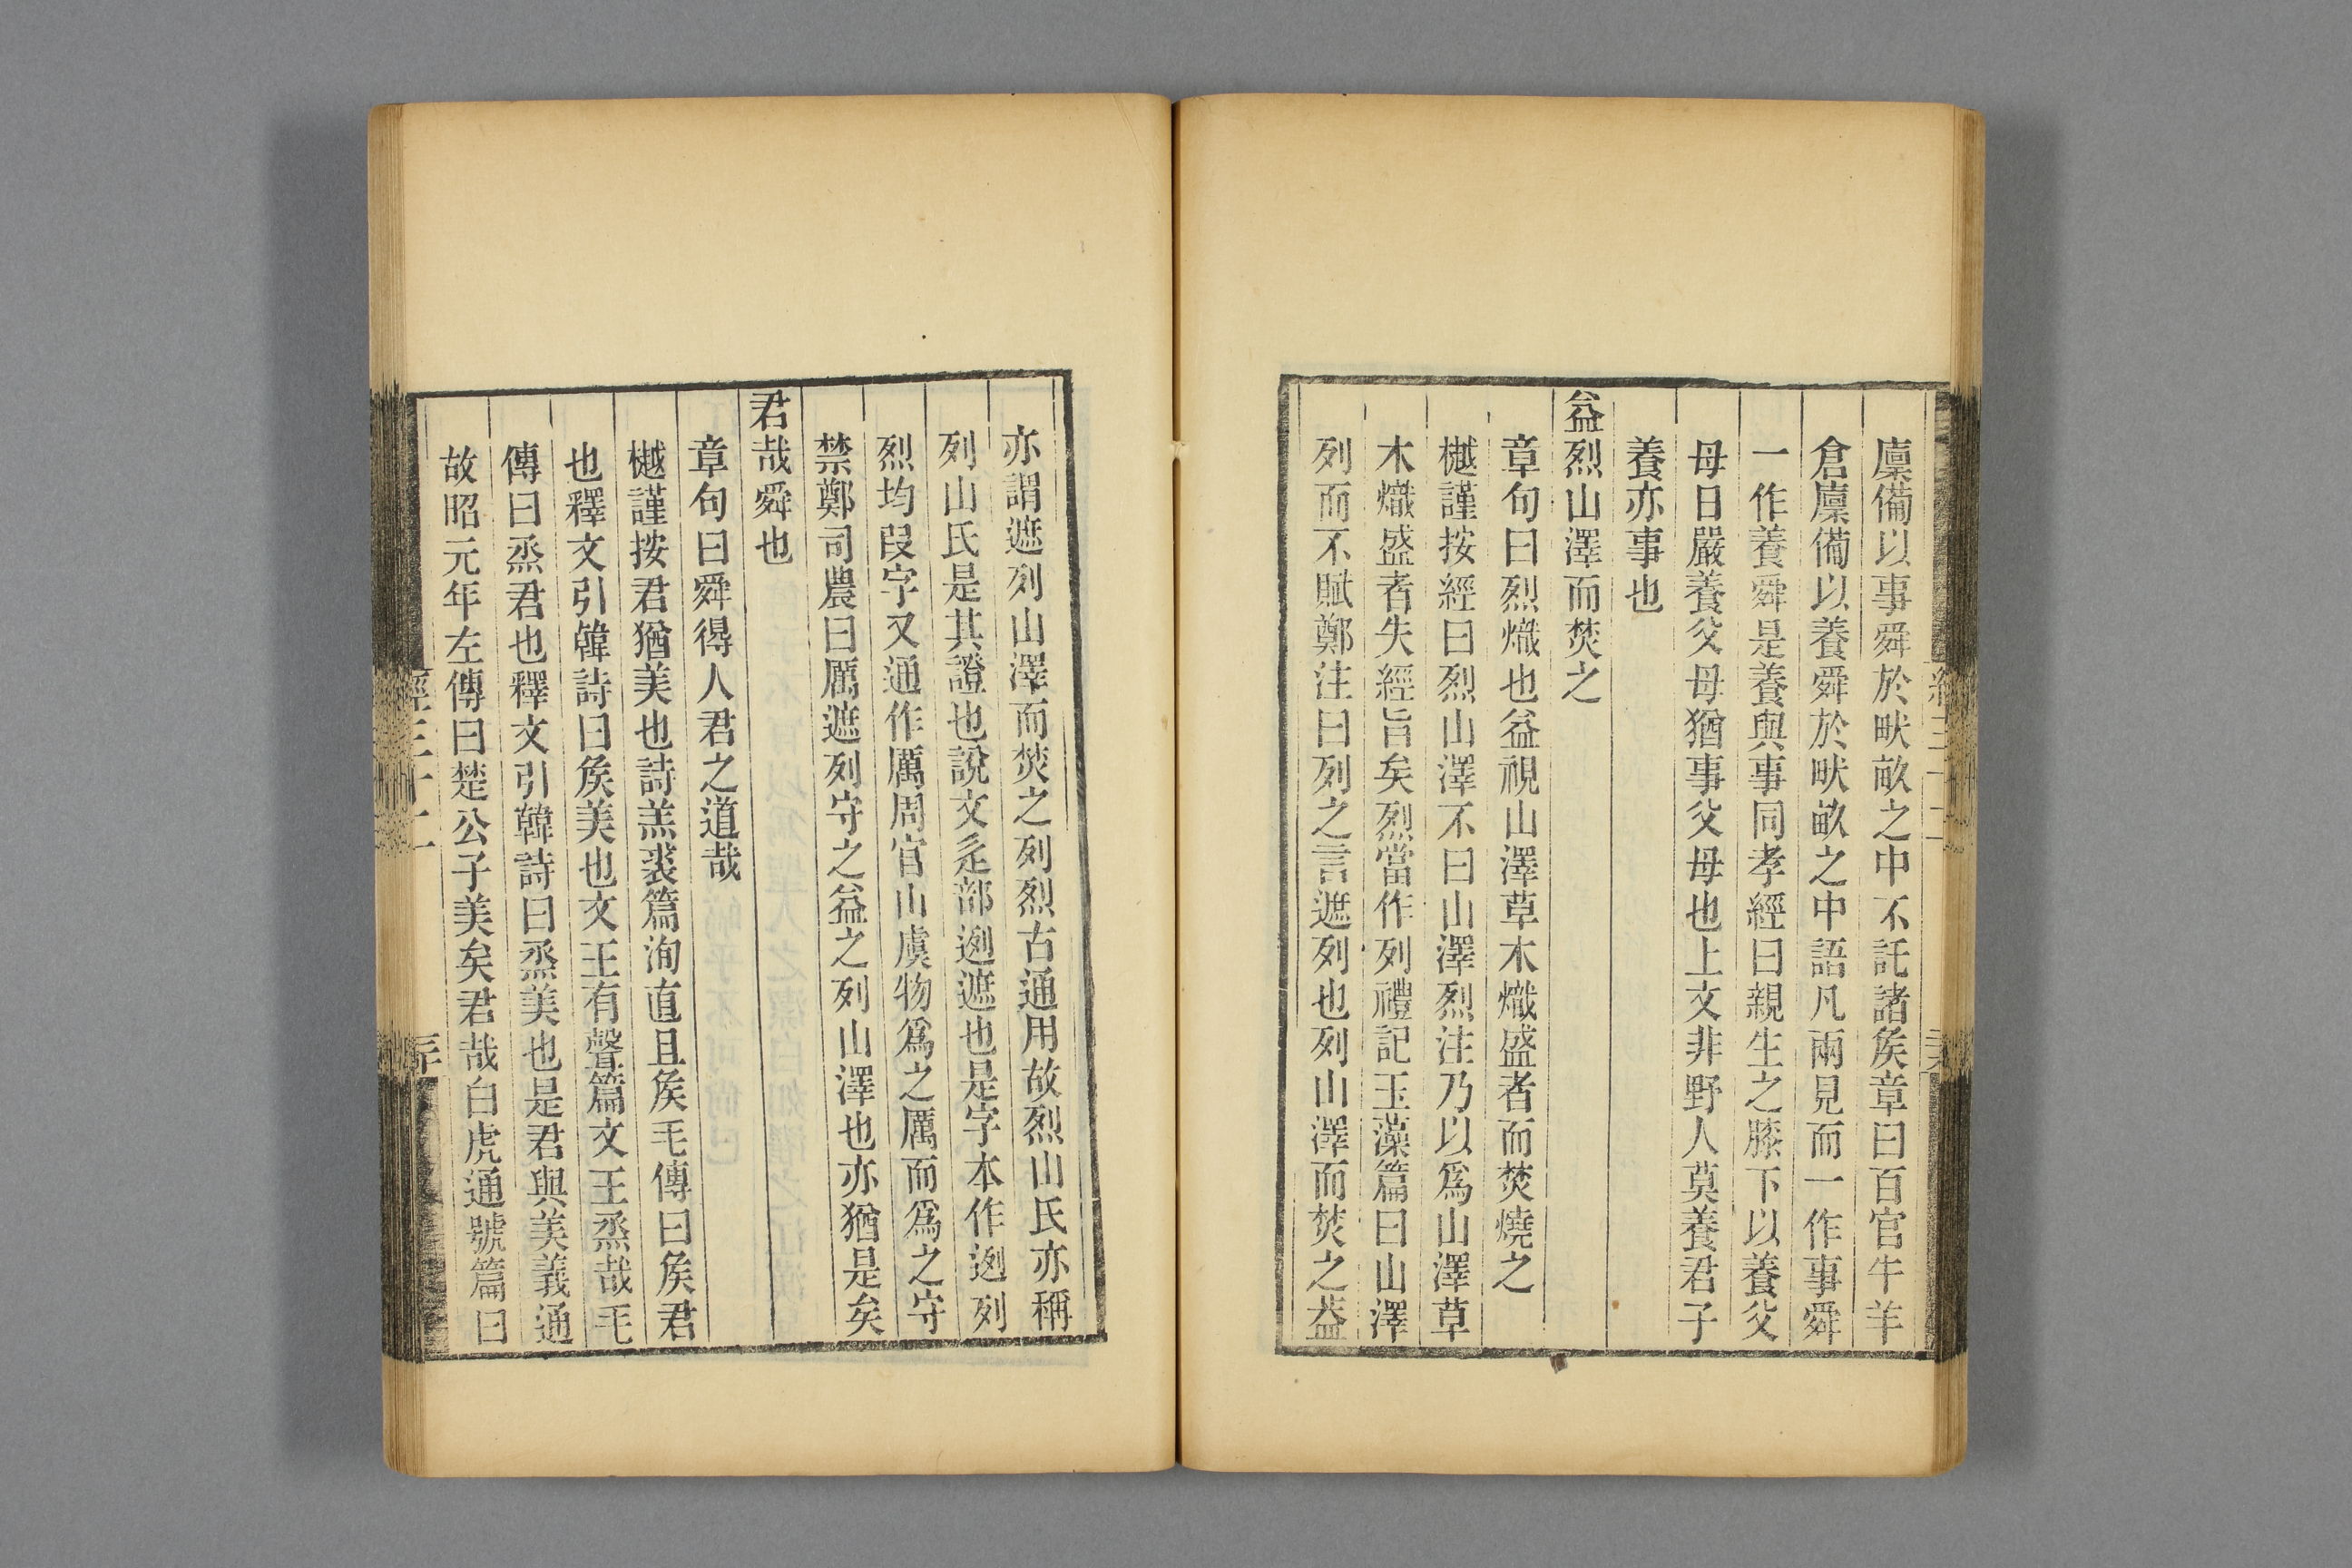 廩備以事舜於畎畝之中不託諸矦章曰百官牛羊
倉廩備以養舜於畎畝之中語凡兩見而一作事舜
一作養舜是養與事同孝經曰親生之膝下以養父
母日嚴養父母猶事父母也上文非野人莫養君子
養亦事也
益烈山澤而焚之
章句曰烈熾也益視山澤草木熾盛者而焚燒之
樾謹按經曰烈山澤不曰山澤烈注乃以爲山澤草
木熾盛者失經旨矣烈當作列禮記玉藻篇曰山澤
列而不賦鄭注曰列之言遮列也列山澤而焚之益
亦謂遮列山澤而焚之列烈古通用故烈山氏亦稱
列山氏是其證也說文辵部迾遮也是字本作迾列
烈均叚字又通作厲周官山虞物爲之厲而爲之守
禁鄭司農曰厲遮列守之益之列山澤也亦猶是矣
君哉舜也
章句曰舜得人君之道哉
樾謹按君猶美也詩羔裘篇洵直且矦毛傳曰矦君
也釋文引韓詩曰矦美也文王有聲篇文王烝哉毛
傳曰烝君也釋文引韓詩曰烝美也是君與美義通
故昭元年左傳曰楚公子美矣君哉白虎通號篇曰